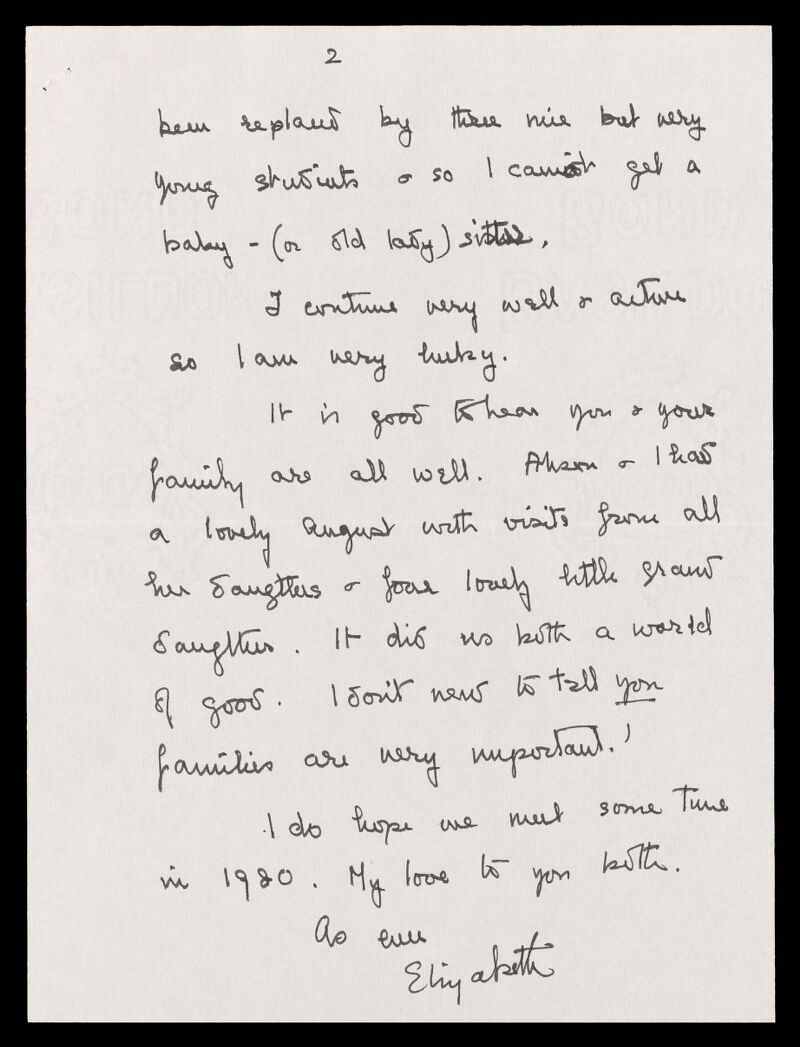 2
been replaced by three nice but very
young students & so I cannot get a
baby - (or old lady) sitter.
I continue very well & active
so I am very lucky.
It is good to hear you & your
family are all well. Alison & I had
a lovely August with visits from all
her daughters & four lovely little grand
daughters. It did us both a world
of good. I don't need to tell you
families are very important.!
I do hope we meet some time
in 1980. My love to you both.
As ever
Elizabeth